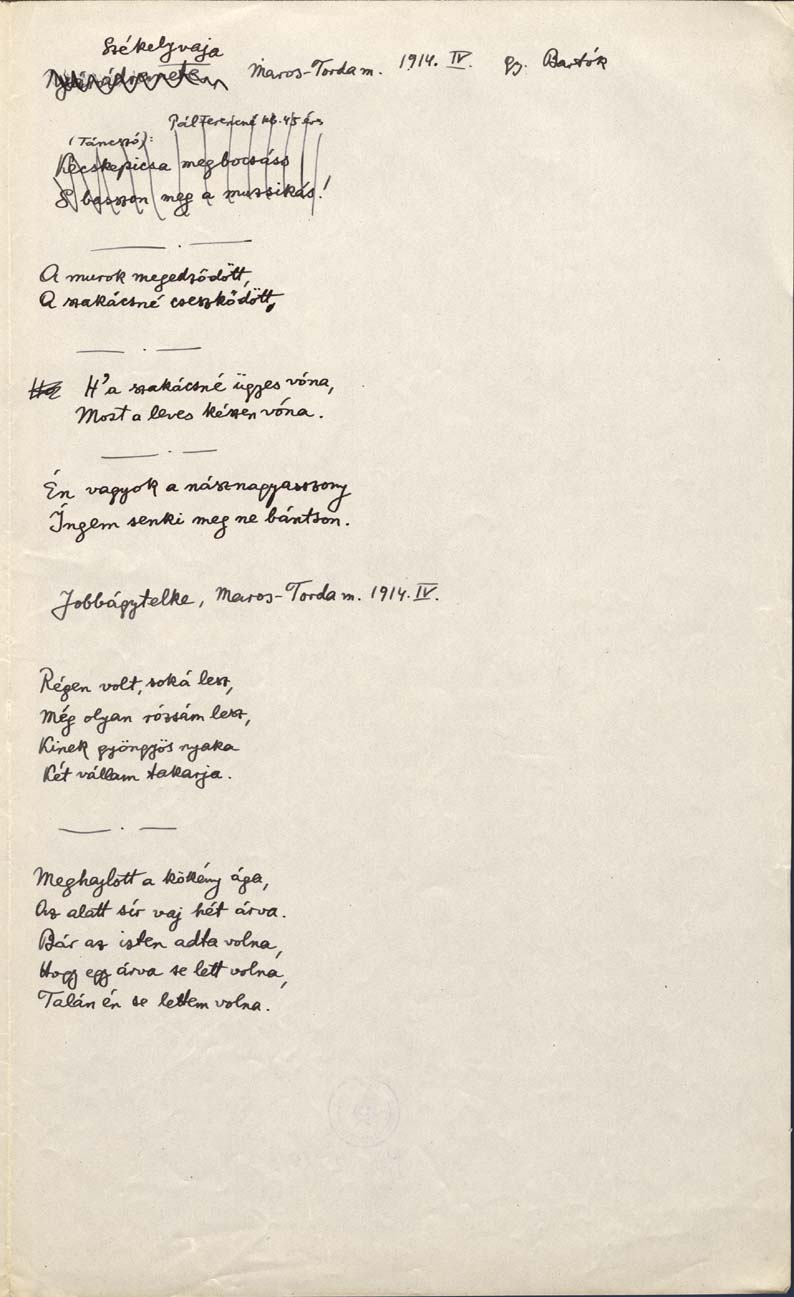 Székelyvaja
Maros-Torda m. 1914. IV. gy. Bartók
Pál Ferencné kb. 45 éves
(Táncszó):
Kecskepicsa megbocsáss
S basszon meg a muzsikás!
A murok megedződött,
A szakácsné cseszkődött,
H'a szakácsné ügyes vóna,
Most a leves készen vóna.
Én vagyok a násznagyasszony
Ingem senki meg ne bántson.
Jobbágytelke, Maros-Torda m. 1914. IV.
Régen volt, soká lesz,
Még olyan rózsám lesz,
Kinek gyöngyös nyaka
Két vállam takarja.
Meghajlott a kökény ága,
Az alatt sír vaj hét árva.
Bár az isten adta volna,
Hogy egy árva se lett volna,
Talán én se lettem volna.